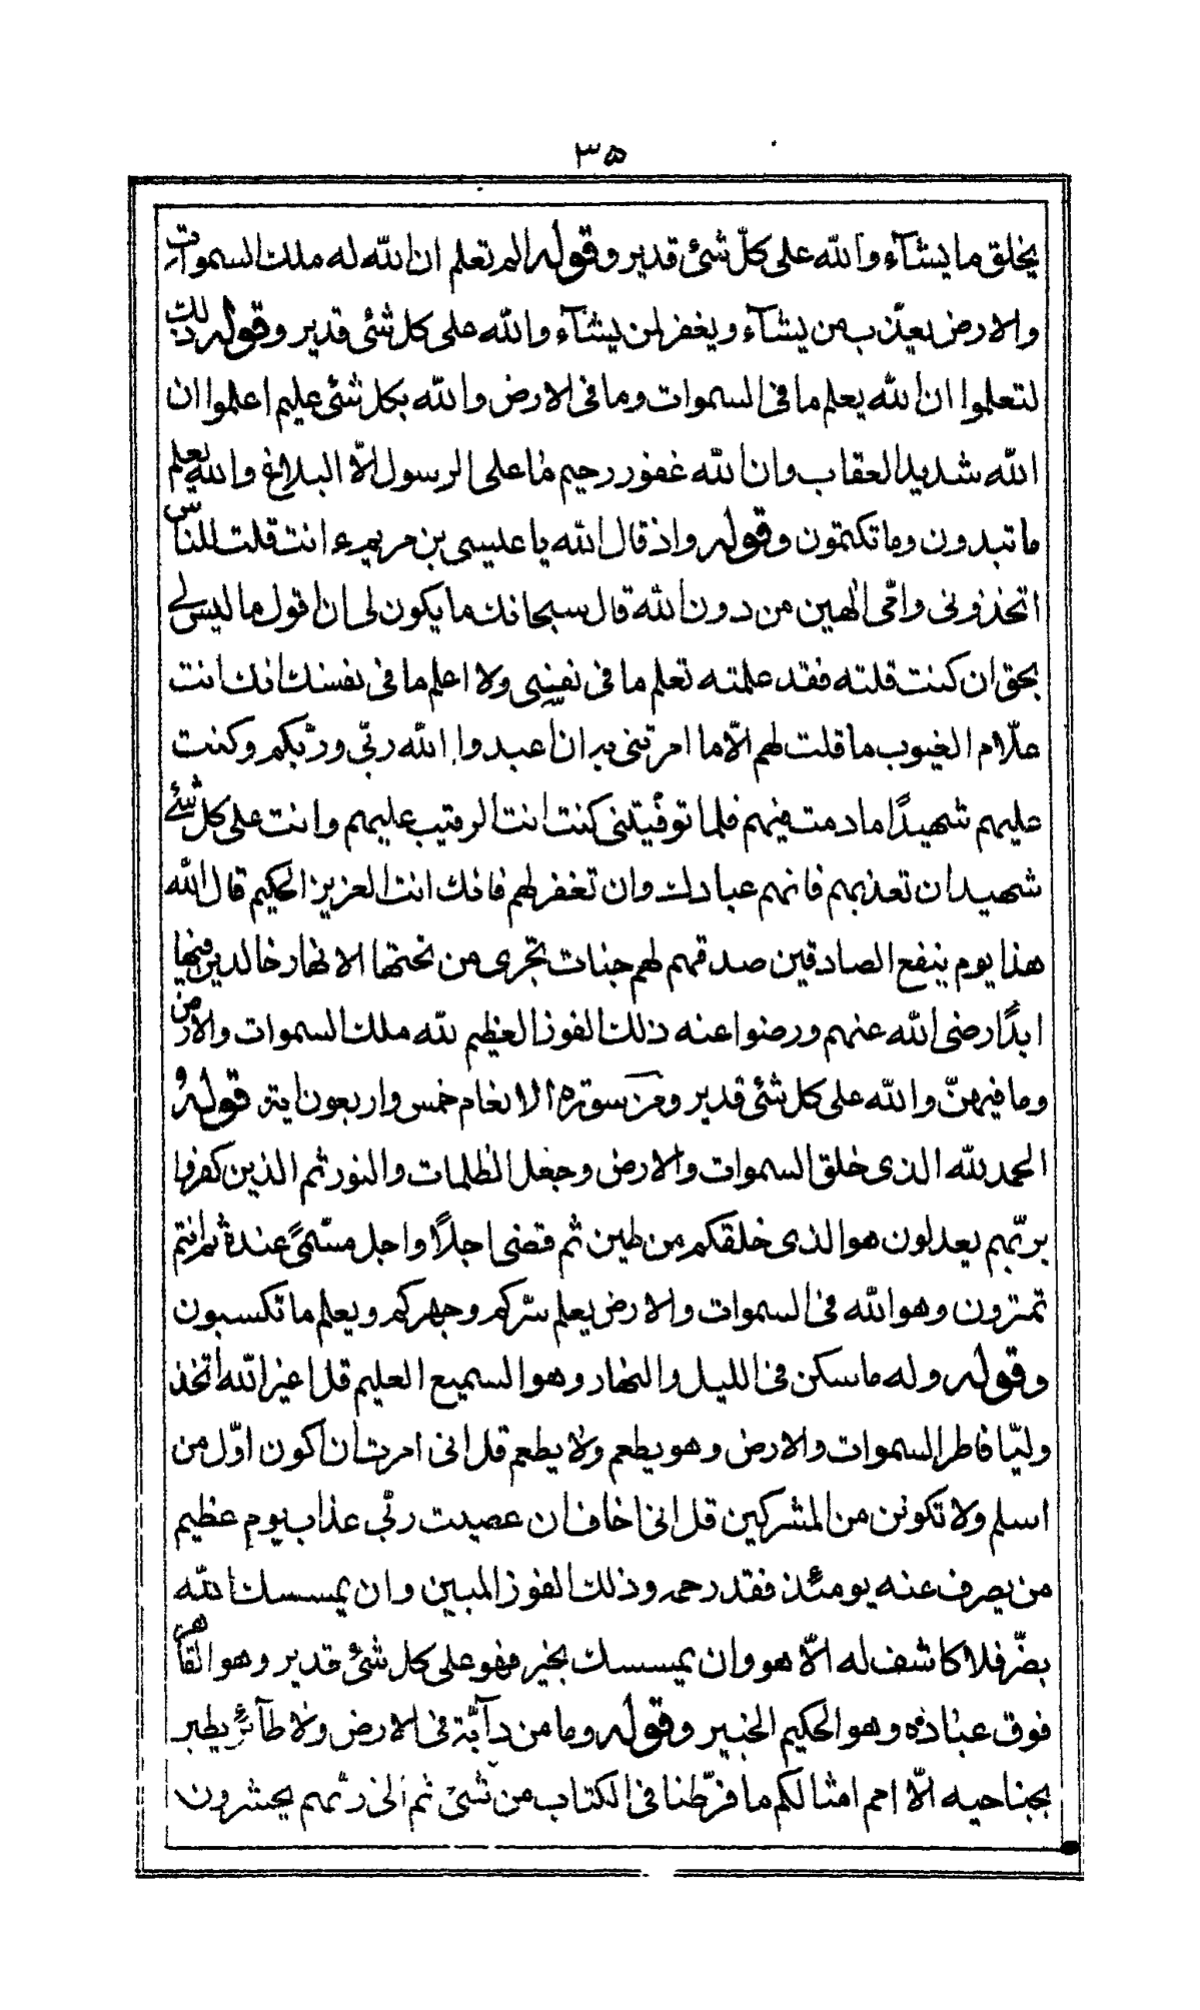 ٣٥
يخلق ما يشآء والله على كلّ شئ قدير وقوله الم تعلم ان الله له ملك السموات
والارض يعذّب من يشآء ويغفر لمن يشآء والله على كل شئ قدير وقوله ذلك
لتعلموا ان الله يعلم ما فى السموات وما فى الارض والله بكل شئ عليم اعلموا ان
الله شديد العقاب وان الله غفور رحيم ما على الرسول الّا البلاغ والله يعلم
ما تبدون وما تكتمون وقوله واذ قال الله يا عيسى بن مريم ء انت قلت للناس
اتخذونى وامّى الٰهين من دون الله قال سبحانك ما يكون لى ان اقول ما ليس لے
بحق ان كنت قلته فقد علمته تعلم ما فى نفسى ولا اعلم ما فى نفسك انك انت
علّام الغيوب ما قلت لهم الّا ما امرتنى به ان اعبدوا الله ربّى وربّكم وكنت
عليهم شهيدًا ما دمت فيهم فلما توفّيتنى كنت انت الرقيب عليهم وانت على كل شئ
شهيد ان تعذبهم فانهم عبادك وان تغفر لهم فانك انت العزيز الحكيم قال الله
هذا يوم ينفع الصادقين صدقهم لهم جنات تجرى من تحتها الانهار خالدين فيها
ابدًا رضى الله عنهم ورضوا عنه ذلك الفوز العظيم لله ملك السموات والارض
وما فيهنّ والله على كل شئ قدير ومن سورة الانعام خمس واربعون اية قوله
الحمد لله الذى خلق السموات والارض وجعل الظلمات والنور ثم الذين كفروا
بربّهم يعدلون هو الذى خلقكم من طين ثم قضى اجلاً واجل مسمّىً عنده ثم انتم
تمترون وهو الله فى السموات والارض يعلم سرّكم وجهركم ويعلم ما تكسبون
وقوله وله ما سكن فى الليل والنهار وهو السميع العليم قل اغير الله اتخذ
وليّا فاطر السموات والارض وهو يطعم ولا يطعم قل انى امرت ان اكون اوّل من
اسلم ولا تكونن من المشركين قل انى اخاف ان عصيت ربّى عذاب يوم عظيم
من يصرف عنه يومئذ فقد رحمه وذلك الفوز المبين وان يمسسك الله
بضّر فلا كاشف له الّا هو وان يمسسك بخير فهو على كل شئ قدير وهو القاهر
فوق عباده وهو الحكيم الخبير وقوله وما من دآبّة فى الارض ولا طآئر يطير
بجناحيه الّا امم امثالكم ما فرّطنا فى الكتاب من شئ ثم الى ربّهم يحشرون